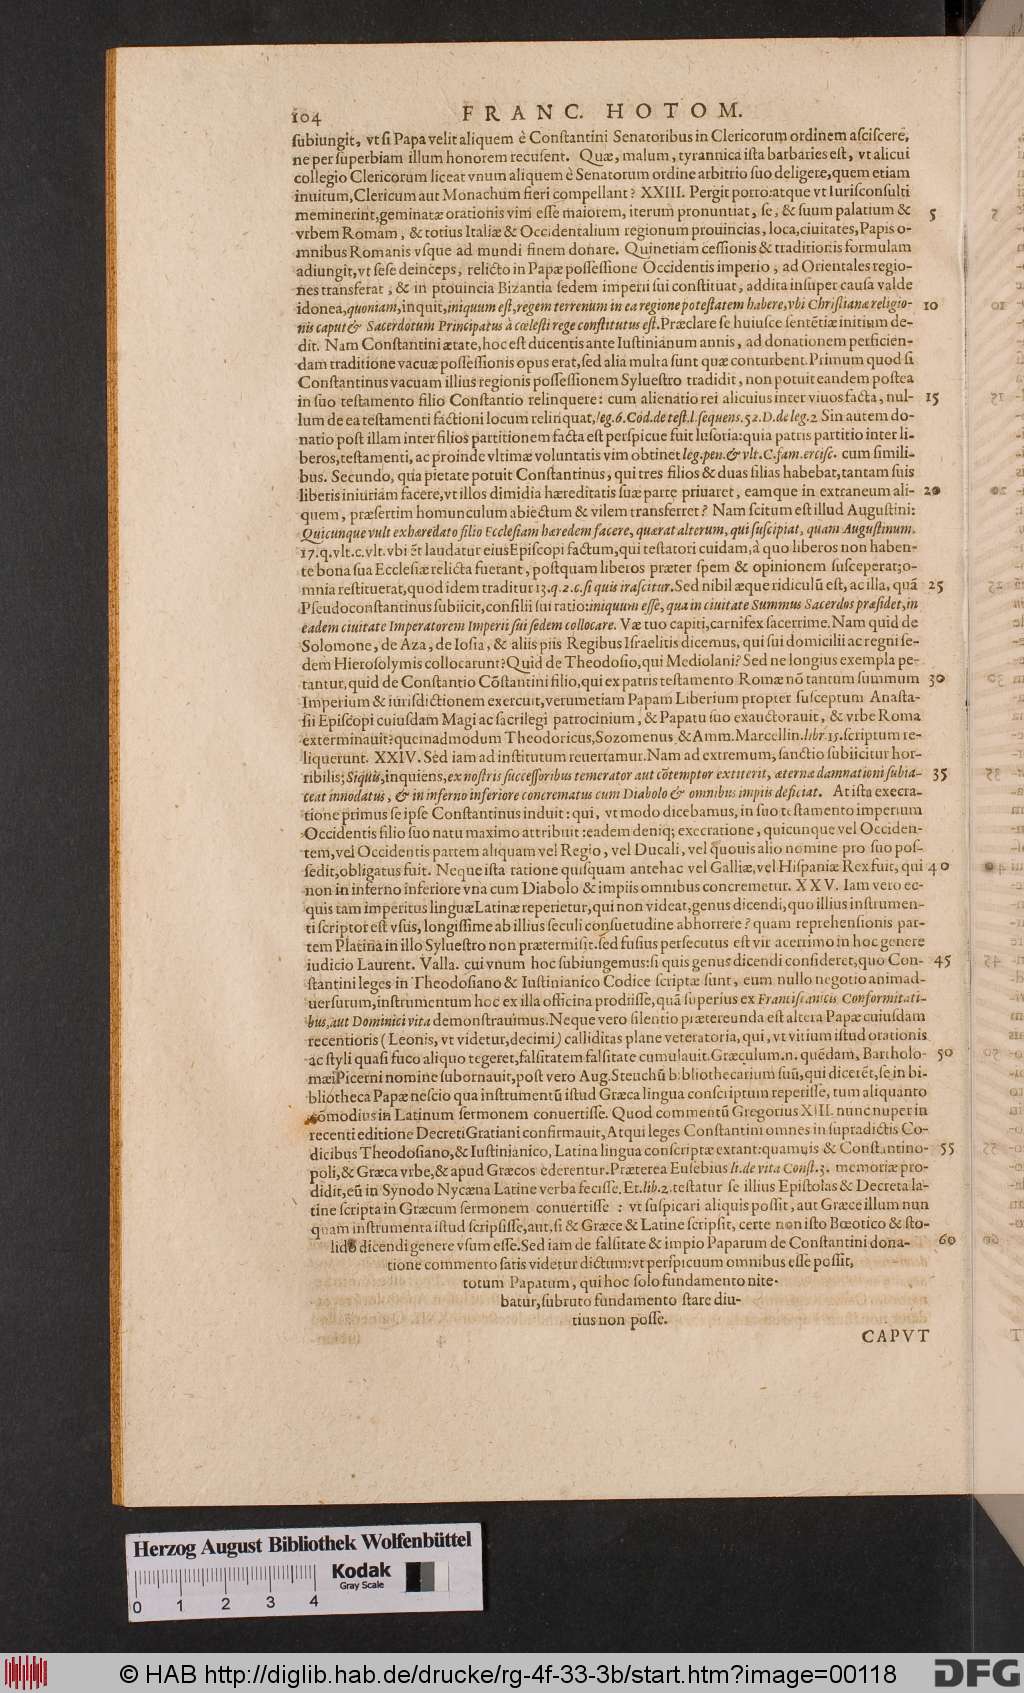 104 FRANC. HOTOM.
ſubiungit, vt ſi Papa velit aliquem è Conſtantini Senatoribus in Clericorum ordinem aſciſcere,
ne per ſuperbiam illum honorem recuſent. Quæ, malum, tyrannica iſta barbaries eſt, vt alicui
collegio Clericorum liceat vnum aliquem è Senatorum ordine arbitrio ſuo deligere, quem etiam
inuitum, Clericum aut Monachum fieri compellant? XXIII. Pergit porro: atque vt Iuriſconſulti
meminerint, geminatæ orationis vim eſſe maiorem, iterum pronuntiat, ſe, & ſuum palatium & 5
vrbem Romam, & totius Italiæ & Occidentalium regionum prouincias, loca, ciuitates, Papis o-
mnibus Romanis vſque ad mundi finem donare. Quinetiam ceſſionis & traditionis formulam
adiungit, vt ſeſe deinceps, relicto in Papæ poſſeſſione Occidentis imperio, ad Orientales regio-
nes transferat, & in prouincia Bizantia ſedem imperii ſui conſtituat, addita inſuper cauſa valde
idonea, quoniam, inquit, iniquum eſt, regem terrenum in ea regione poteſtatem habere, vbi Chriſtianæ religio- 10
nis caput & Sacerdotum Principatus à cœleſti rege conſtitutus eſt. Præclare ſe huiuſce ſentẽtiæ initium de-
dit. Nam Conſtantini ætate, hoc eſt ducentis ante Iuſtinianum annis, ad donationem perficien-
dam traditione vacuæ poſſeſſionis opus erat, ſed alia multa ſunt quæ conturbent. Primum quod ſi
Conſtantinus vacuam illius regionis poſſeſſionem Sylueſtro tradidit, non potuit eandem poſtea
in ſuo teſtamento filio Conſtantio relinquere: cum alienatio rei alicuius inter viuos facta, nul- 15
lum de ea teſtamenti factioni locum relinquat, leg. 6. Cod. de teſt. l. ſequens. 52. D. de leg. 2 Sin autem do-
natio poſt illam inter filios partitionem facta eſt perſpicue fuit luſoria: quia patris partitio inter li-
beros, teſtamenti, ac proinde vltimæ voluntatis vim obtinet leg. pen. & vlt. C. fam. erciſc. cum ſimili-
bus. Secundo, qua pietate potuit Conſtantinus, qui tres filios & duas filias habebat, tantam ſuis
liberis iniuriam facere, vt illos dimidia hæreditatis ſuæ parte priuaret, eamque in extraneum ali- 20
quem, præſertim homunculum abiectum & vilem transferret? Nam ſcitum eſt illud Auguſtini:
Quicunque vult exhæredato filio Eccleſiam hæredem facere, quærat alterum, qui ſuſcipiat, quam Auguſtinum.
17. q. vlt. c. vlt. vbi ẽt laudatur eius Epiſcopi factum, qui teſtatori cuidam, à quo liberos non haben-
te bona ſua Eccleſiæ relicta fuerant, poſtquam liberos præter ſpem & opinionem ſuſceperat; o-
mnia reſtituerat, quod idem traditur 13. q. 2. c. ſi quis iraſcitur. Sed nihil æque ridiculũ eſt, ac illa, quã 25
Pſeudoconſtantinus ſubiicit, conſilii ſui ratio: iniquum eſſe, qua in ciuitate Summus Sacerdos præſidet, in
eadem ciuitate Imperatorem Imperii ſui ſedem collocare. Væ tuo capiti, carnifex ſacerrime. Nam quid de
Solomone, de Aza, de Ioſia, & aliis piis Regibus Iſraelitis dicemus, qui ſui domicilii ac regni ſe-
dem Hieroſolymis collocarunt? Quid de Theodoſio, qui Mediolani? Sed ne longius exempla pe-
tantur, quid de Conſtantio Cõſtantini filio, qui ex patris teſtamento Romæ nõ tantum ſummum 30
Imperium & iuriſdictionem exercuit, verumetiam Papam Liberium propter ſuſceptum Anaſta-
ſii Epiſcopi cuiuſdam Magi ac ſacrilegi patrocinium, & Papatu ſuo exauctorauit, & vrbe Roma
exterminauit? quemadmodum Theodoricus, Sozomenus & Amm. Marcellin. libr. 15. ſcriptum re-
liquerunt. XXIV. Sed iam ad inſtitutum reuertamur. Nam ad extremum, ſanctio ſubiicitur hor-
ribilis; Siquis, inquiens, ex noſtris ſucceſſoribus temerator aut cõtemptor extiterit, æternæ damnationi ſubia- 35
ceat innodatus, & in inferno inferiore concrematus cum Diabolo & omnibus impiis deficiat. At iſta execra-
tione primus ſe ipſe Conſtantinus induit: qui, vt modo dicebamus, in ſuo teſtamento imperium
Occidentis filio ſuo natu maximo attribuit: eadem deniq; execratione, quicunque vel Occiden-
tem, vel Occidentis partem aliquam vel Regio, vel Ducali, vel quouis alio nomine pro ſuo poſ-
ſedit, obligatus fuit. Neque iſta ratione quiſquam antehac vel Galliæ, vel Hiſpaniæ Rex fuit, qui 40
non in inferno inferiore vna cum Diabolo & impiis omnibus concremetur. XXV. Iam vero ec-
quis tam imperitus linguæ Latinæ reperietur, qui non videat, genus dicendi, quo illius inſtrumen-
ti ſcriptor eſt vſus, longiſſime ab illius ſeculi conſuetudine abhorrere? quam reprehenſionis par-
tem Platina in illo Sylueſtro non prætermiſit. ſed fuſius perſecutus eſt vir acerrimo in hoc genere
iudicio Laurent. Valla. cui vnum hoc ſubiungemus: ſi quis genus dicendi conſideret, quo Con- 45
ſtantini leges in Theodoſiano & Iuſtinianico Codice ſcriptæ ſunt, eum nullo negotio animad-
uerſurum, inſtrumentum hoc ex illa officina prodiiſſe, quã ſuperius ex Franciſcanicis Conformitati-
bus, aut Dominici vita demonſtrauimus. Neque vero ſilentio prætereunda eſt altera Papæ cuiuſdam
recentioris (Leonis, vt videtur, decimi) calliditas plane veteratoria, qui, vt vitium iſtud orationis
ac ſtyli quaſi fuco aliquo tegeret, falſitatem falſitate cumulauit. Græculum. n. quẽdam, Bartholo- 50
mæi Picerni nomine ſubornauit, poſt vero Aug. Steuchũ bibliothecarium ſuũ, qui dicerẽt, ſe in bi-
bliotheca Papæ neſcio qua inſtrumentũ iſtud Græca lingua conſcriptum reperiſſe, tum aliquanto
cõmodius in Latinum ſermonem conuertiſſe. Quod commentũ Gregorius XIII. nunc nuper in
recenti editione Decreti Gratiani confirmauit, Atqui leges Conſtantini omnes in ſupradictis Co-
dicibus Theodoſiano, & Iuſtinianico, Latina lingua conſcriptæ extant: quamuis & Conſtantino- 55
poli, & Græca vrbe, & apud Græcos ederentur. Præterea Euſebius li. de vita Conſt. 3. memoriæ pro-
didit, eũ in Synodo Nycæna Latine verba feciſſe. Et. lib. 2. teſtatur ſe illius Epiſtolas & Decreta la-
tine ſcripta in Græcum ſermonem conuertiſſe: vt ſuſpicari aliquis poſſit, aut Græce illum nun
quam inſtrumenta iſtud ſcripſiſſe, aut. ſi & Græce & Latine ſcripſit, certe non iſto Bœotico & ſto-
lido dicendi genere vſum eſſe. Sed iam de falſitate & impio Paparum de Conſtantini dona- 60
tione commento ſatis videtur dictum: vt perſpicuum omnibus eſſe poſſit,
totum Papatum, qui hoc ſolo fundamento nite-
batur, ſubruto fundamento ſtare diu-
tius non poſſe.
CAPVT
Herzog August Bibliothek Wolfenbüttel
Kodak
Gray Scale
0 1 2 3 4
© HAB http://diglib.hab.de/drucke/rg-4f-33-3b/start.htm?image=00118
DFG